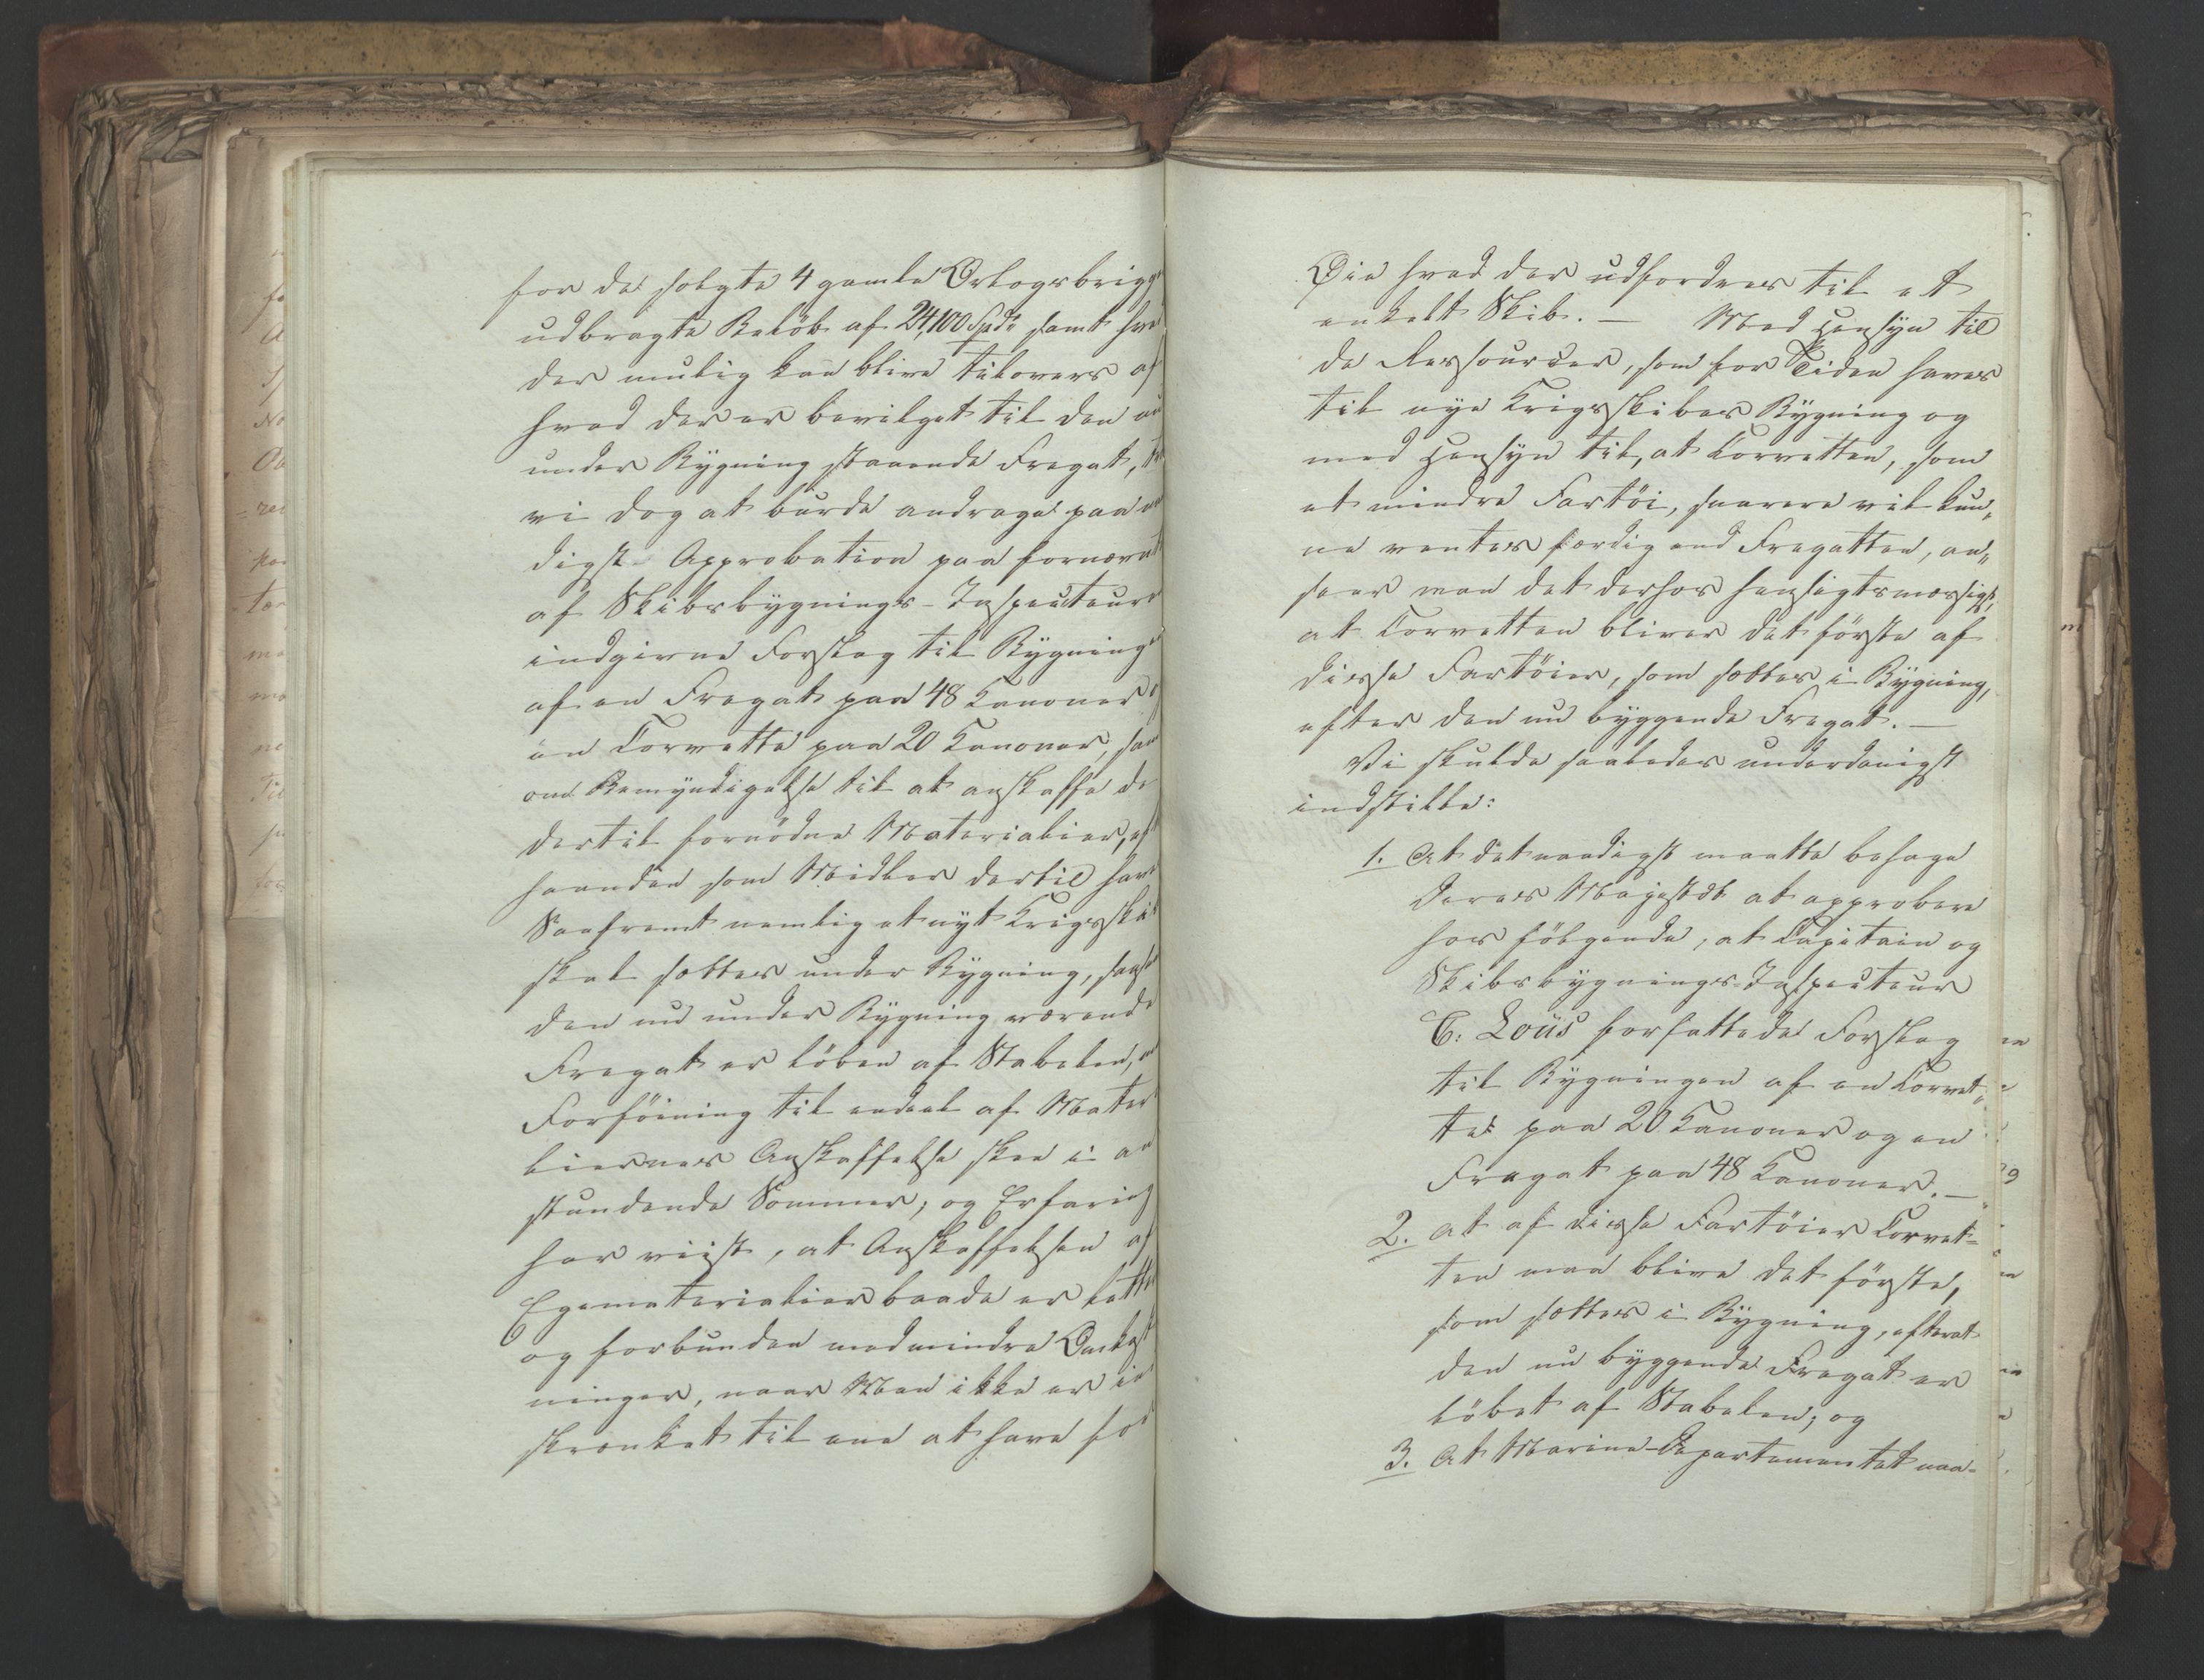 for de solgte 4 gamle Orlogsbrigge
udbragte Belöb af 24,100 Spd. samt hva
der mulig kan blive tilovers af
hvad der er bevilget til den nu
under Bygning staaende Fregat, tr
vi dog at burde andrage paa na
digst Approbation paa fornævnt
af Skibsbygnings-Inspecteure
indgivne Forslag til Bygninge
af en Fregat paa 48 Kanoner o
en Corvette paa 20 Kanoner, sam
om Bemyndigelse til at anskaffe de
dertil fornödne Materialier, eft
haanden som Midler dertil have
Saafremt nemlig et nyt Krigsskib
skal sættes under Bygning, saasn
den nu under Bygning værende
Fregat er löben af Stabelen, m
Forföining til endeel af Mater
liernes Anskaffelse skee i an
stundende Sommer, og Erfaring
har viist, at Anskaffelsen af
Egematerialier baade er lette
og forbunden med mindre Omkost
ninger, naar Man ikke er in
skrænket til ene at have for
Öie hvad der udfordres til et
enkelt Skib. — Med Hensyn til
de Ressourcer, som for Tiden haves
til nye Krigsskibes Bygning og
med Hensyn til, at Corvetten, som
et mindre Fartöi, snarere vil kun„
ne ventes færdig end Fregatten, an„
seer man det derhos hensigtsmæssigt,
at Corvetten bliver det förste af
disse Fartöier, som sættes i Bygning,
efter den nu byggende Fregat. —
Vi skulde saaledes underdanigst
indstille:
1. At det naadigst maatte behage
Deres Majestæt at approbere
hos fölgende, at Capitain og
Skibsbygnings-Inspecteur
C. Loüs forfattede Forslag
til Bygningen af en Corvet„
te paa 20 Kanoner og en
Fregat paa 48 Kanoner. —
2. at af disse Fartöier Corvet=
ten maa blive det förste,
som sættes i Bygning, efterat
den nu byggende Fregat er
löbet af Stabelen; og
3. At Marine-Departementet naa-